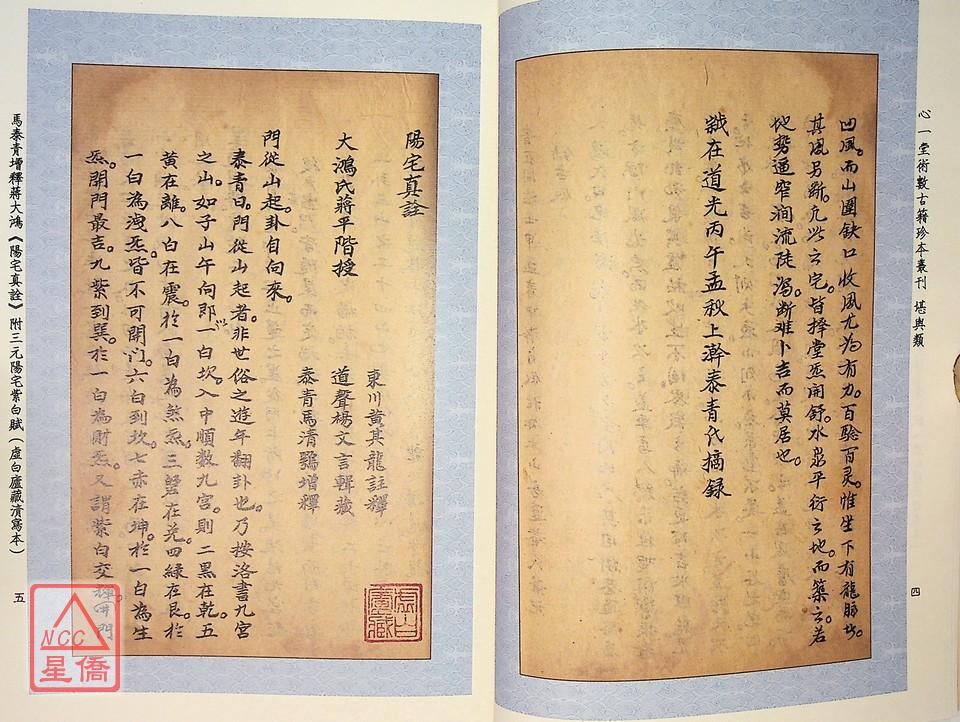 心一堂術數古籍珍本叢刊 堪輿類
四
凹風。而山圍缺口收風尤為有力。百驗百灵。惟坐下有龍脉者。
其風另斷。亢此之宅。皆擇堂炁開舒。水泉平衍之地。而築之。若
地勢逼窄。澗流陡瀉。断难卜吉而莫居也。
識在道光丙午孟秋上澣泰青氏摘錄
陽宅真詮
大鴻氏蔣平階授
東川黄其龍註釋
道聲楊文言輯藏
泰青馬清鶚增釋
門從山起。卦自向來。
泰青曰。門從山起者。非世俗之遊年翻卦也。乃按洛書九宮
之山。如子山午向。即一白坎。入中順数九宮。則二黒在乾。五
黄在離。八白在震。於一白為煞炁。三碧在兊。四緑在艮。於
一白為洩炁。皆不可開門。六白到坎。七赤在坤。於一白為生
炁。開門最吉。九紫到巽。於一白為財炁。又謂紫白交 門
虛白廬藏
馬泰青增釋蔣大鴻《陽宅真詮》附三元陽宅紫白賦(虛白廬藏清寫本)
五
NCC
星僑